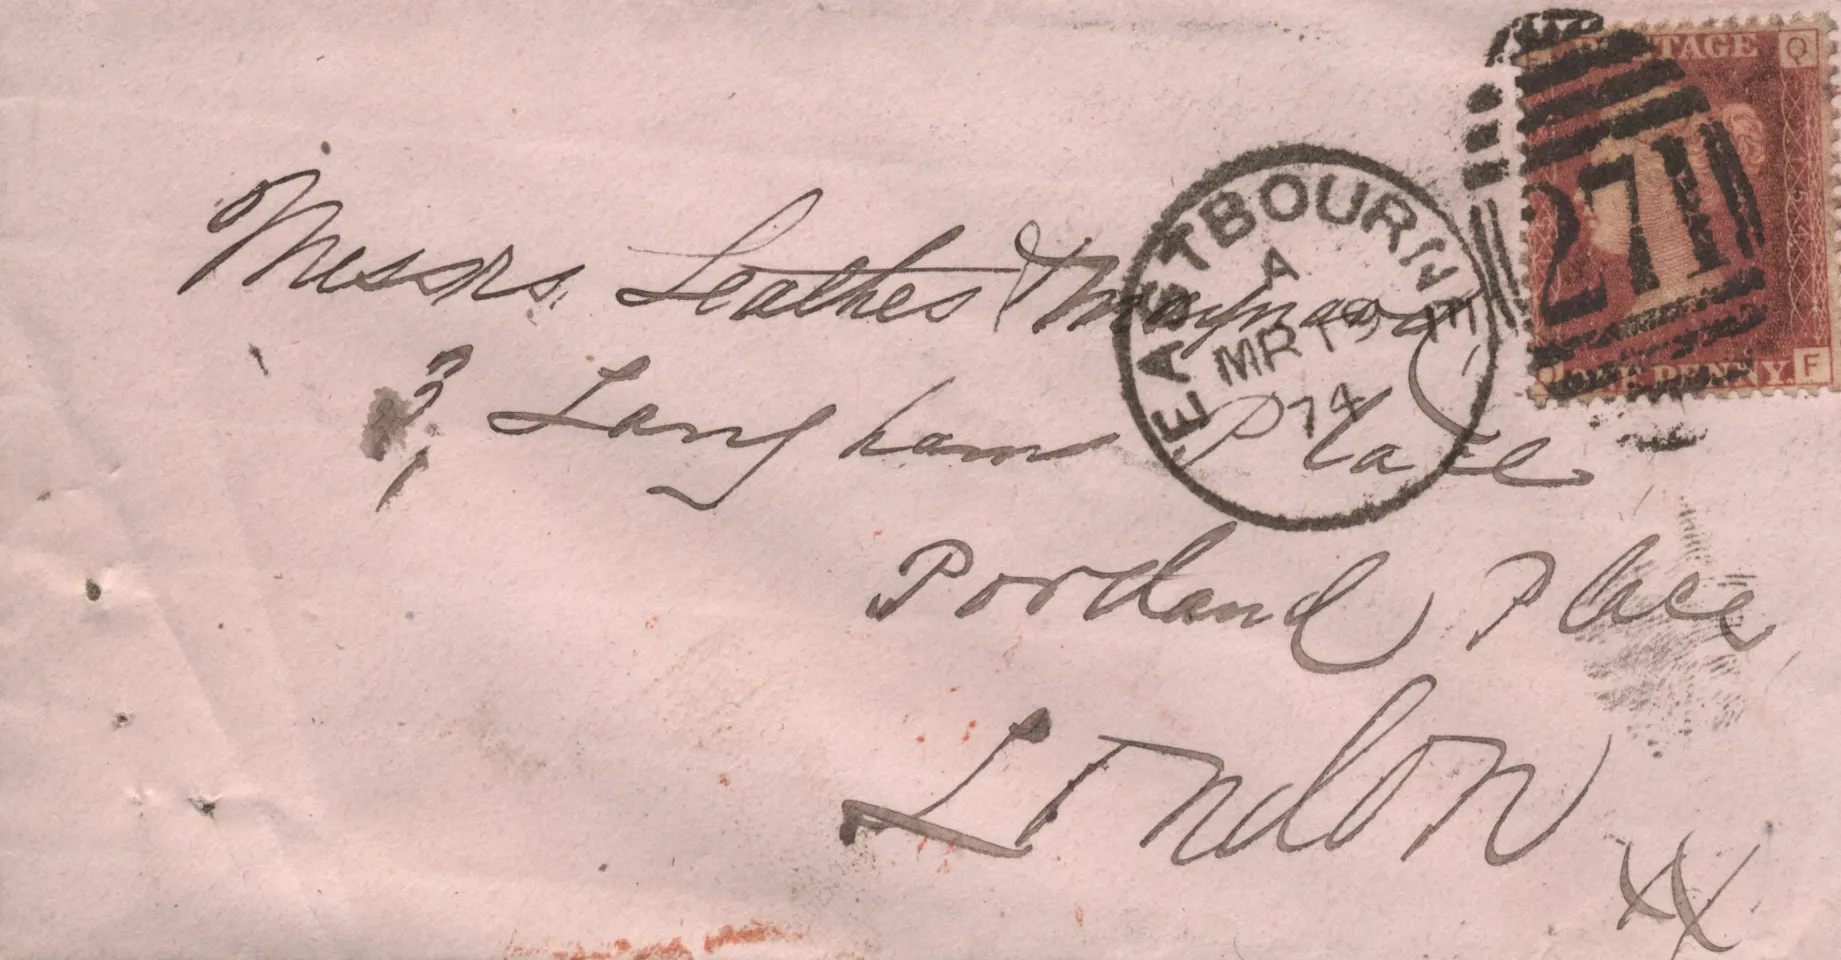 POSTAGE
Q
271
Q ONE PENNY. F
EASTBOURNE
A
MR 19
74
Messrs Leathes & Maynard
3, Langham Place
Portland Place
London